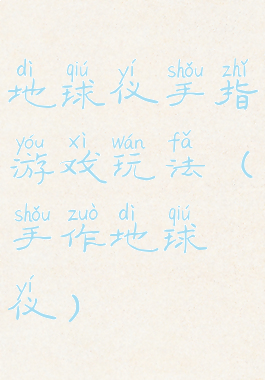 dì qiú yí shǒu zhǐ
地球仪手指
yóu xì wán fǎ
游戏玩法（
shǒu zuò dì qiú
手作地球
yí
仪）